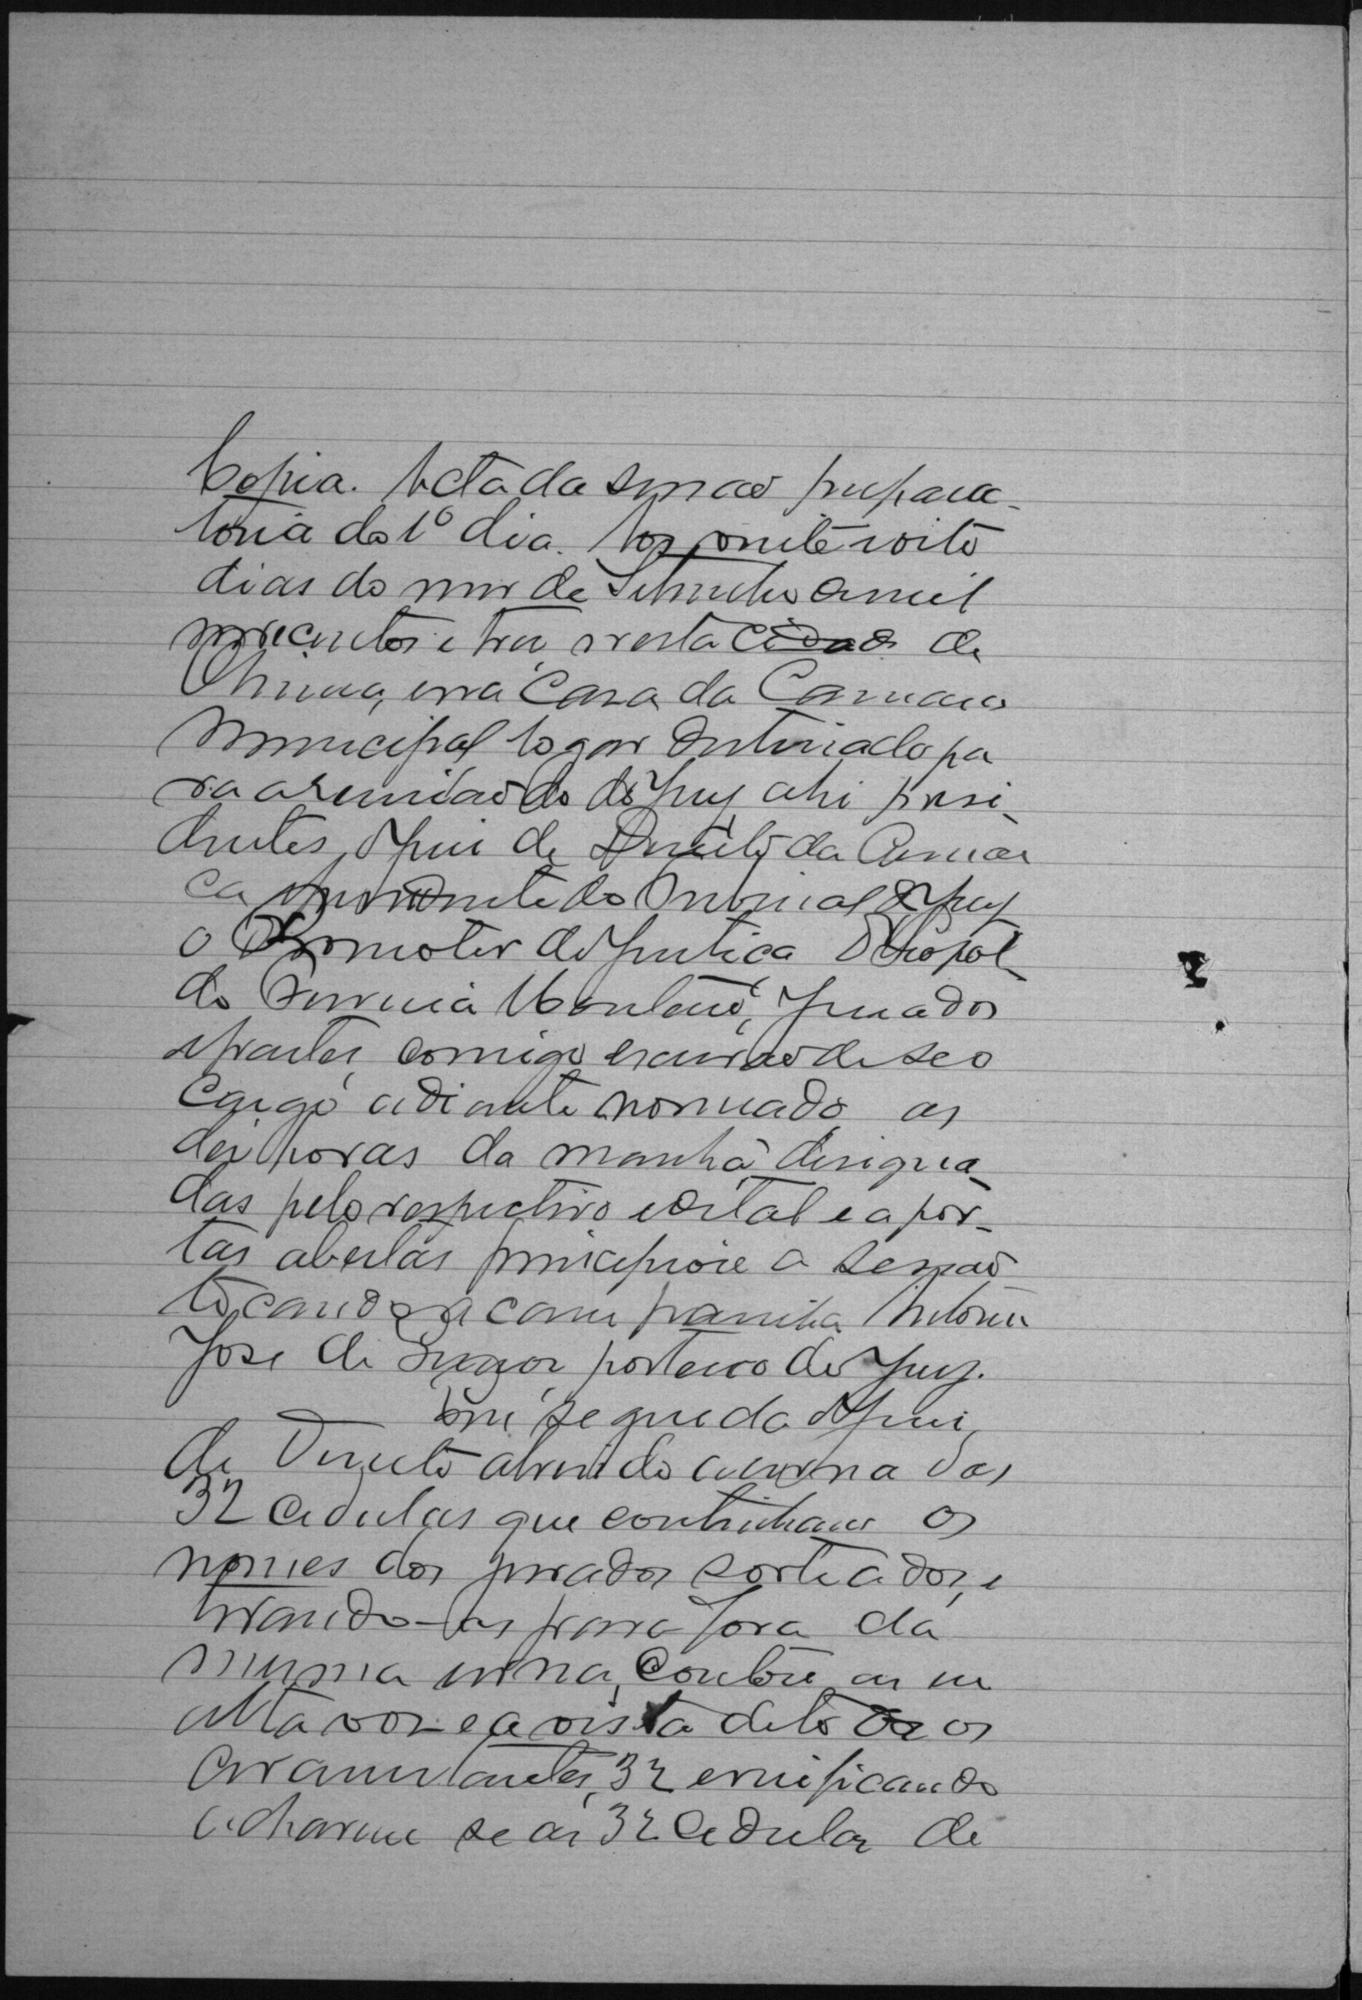 Copia. Acta da sessão prepara-
toria do 1º dia. Aos vinte e oito
dias do mez de Setembro de mil
novecentos e tres, nesta cidade de
na Casa da Camara
Municipal logar destinado pa
ra a reunião do do Jury, ahi presi-
dentes, o Juiz de Direito da Comar
ca Presidente do Tribunal do Jury
o Promotor de Justiça Leopol-
do Monteiro, Jurados
e partes, comigo escrivão de seo
cargo adiante nomeado, as
dez horas da manhã designa-
das pelo respectivo edital e a por-
tas abertas principiou a sessão
tocando a campainha Antonio
José de porteiro do Jury.
Em seguida o Juiz
de Direito abrindo a urna das
32 cedulas que continham os
nomes dos jurados sorteados, e
tirando-as para fora da
mesma urna, contou as em
alta voz e a vista de todos os
circumstantes, 32 e verificando
acharem se as 32 cedulas de